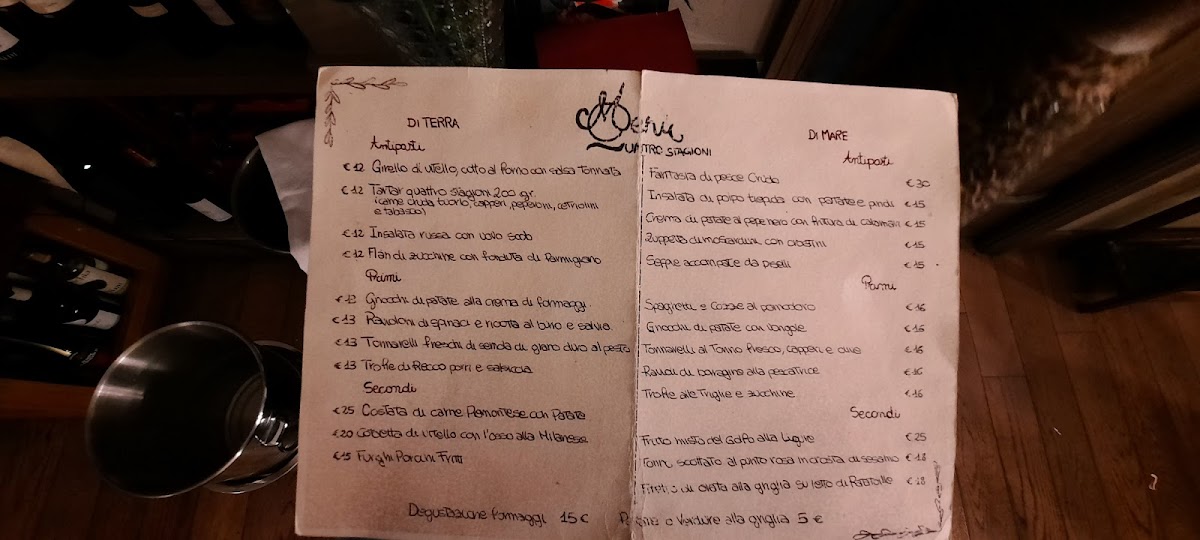 Menù
QUATTRO STAGIONI
DI TERRA
Antipasti
€12 Girello di vitello, cotto al forno con salsa Tonnata
€12 Tartar quattro stagioni 200 gr.
(carne cruda, tuorlo, capperi, peperoni, cetriolini
e tabasco)
€12 Insalata russa con uovo sodo
€12 Flan di zucchine con fonduta di Parmigiano
Primi
€12 Gnocchi di patate alla crema di formaggi
€13 Ravioloni di spinaci e ricotta al burro e salvia
€13 Tonnarelli freschi di semola di grano duro al pesto
€13 Troffie di Recco porri e salsiccia
Secondi
€25 Costata di carne Piemontese con Patate
€20 Cotoletta di vitello con l'osso alla Milanese
€15 Funghi Porcini Fritti
Degustazione formaggi 15€
DI MARE
Antipasti
Fantasia di pesce Crudo €30
Insalata di polpo tiepida con patate e pinoli €15
Crema di patate al pepe nero con frittura di calamari €15
Zuppetta di moscardini con crostini €15
Seppie accompate da piselli €15
Primi
Spaghetti e Cozze al pomodoro €16
Gnocchi di patate con vongole €16
Tonnarelli al Tonno fresco, capperi e olive €16
Ravioli di borragine alla pescatrice €16
Troffie alle Triglie e zucchine €16
Secondi
Fritto misto del Golfo alla Ligure €25
Tonno scottato al punto rosa in crosta di sesamo €18
Filetto di orata alla griglia su letto di Patatine €18
Patatine o Verdure alla griglia 5 €